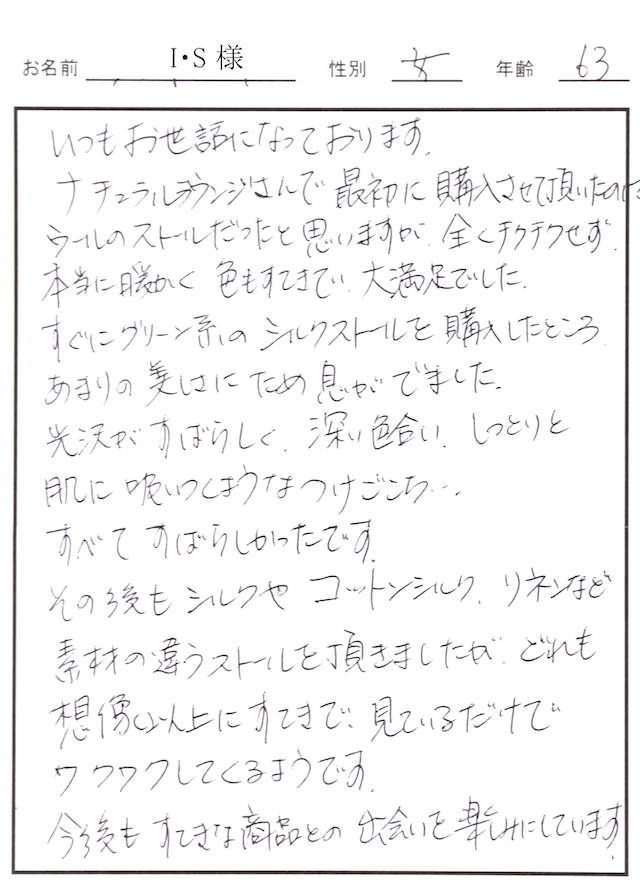 お名前 I・S 様 性別 女 年齢 63
いつもお世話になっております。
ナチュラルラウンジさんで 最初に 購入させて頂いたのは
ウールのストールだったと思いますが、全くチクチクせず、
本当に暖かく 色もすてきで、大満足でした。
すぐにグリーン系の シルクストールを 購入したところ、
あまりの 美しさに ため 息がでました。
光沢がすばらしく、深い色合い、しっとりと
肌に 吸いつくようなつけごこち…
すべて すばらしかったです。
その後も シルクや コットンシルク、リネンなど
素材の違うストールを頂きましたが、どれも
想像以上にすてきで、見ているだけで
ワクワクしてくるようです。
今後も すてきな商品との 出会いを楽しみにしています。